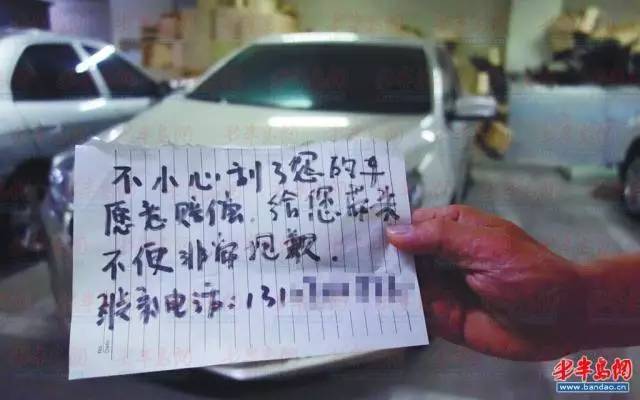 不小心刮了您的车
愿意赔偿.给您带来
不便非常抱歉.
联系电话:131
半岛网
www.bandao.cn